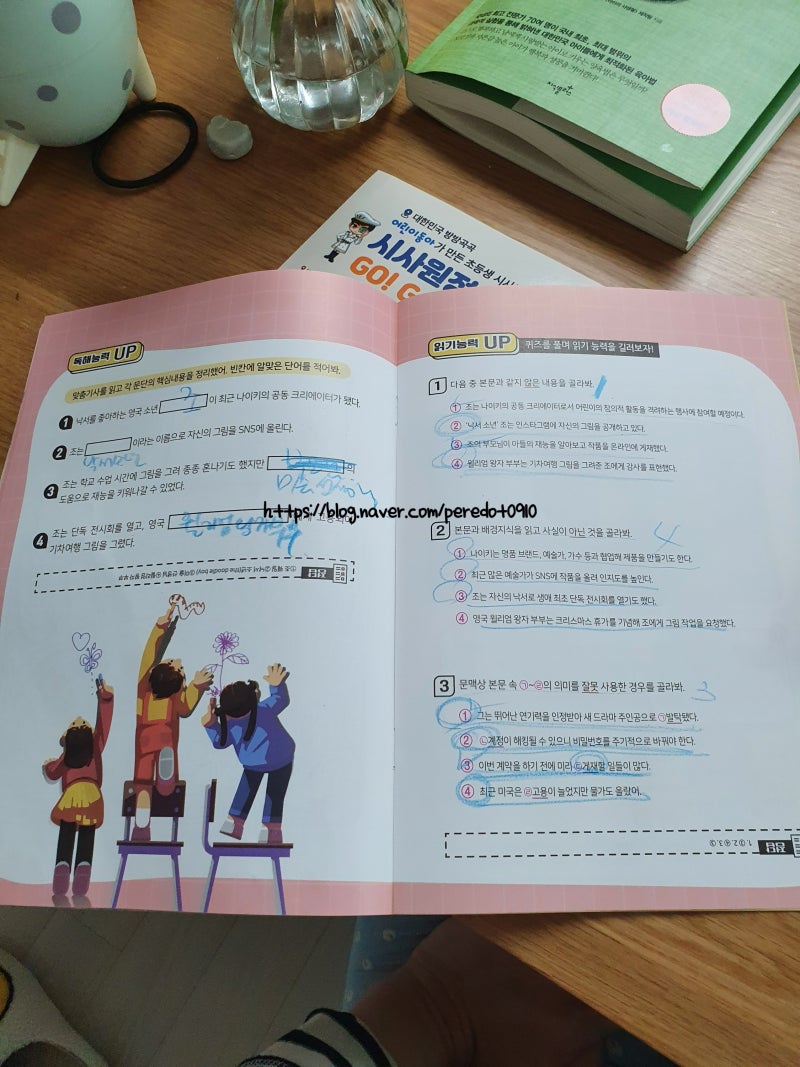 최고 전문가 70여 명이 국내 최초, 최대 범위의
실험을 통해 밝혀낸 대한민국 아이들에게 최적화된 육아법
지식플러스
대한민국 방방곡곡
어린이동아가 만든 초등생 시사
시사원정
GO! G
독해능력 UP
맞춤기사를 읽고 각 문단의 핵심내용을 정리했어. 빈칸에 알맞은 단어를 적어봐.
1 낙서를 좋아하는 영국 소년 조 이 최근 나이키의 공동 크리에이터가 됐다.
2 조는 이라는 이름으로 자신의 그림을 SNS에 올린다.
낙서소년
3 조는 학교 수업 시간에 그림을 그려 종종 혼나기도 했지만 의
도움으로 재능을 키워나갈 수 있었다.
미술 선생님
4 조는 단독 전시회를 열고, 영국 윌리엄 왕자 부부
기차여행 그림을 그렸다.
정답
①조 웨일 ②낙서 소년(the doodle boy) ③미술 선생님 ④윌리엄 왕자 부부
https://blog.naver.com/peredot0910
읽기능력 UP 퀴즈를 풀며 읽기 능력을 길러보자!
1 다음 중 본문과 같지 않은 내용을 골라봐. 1
① 조는 나이키의 공동 크리에이터로서 어린이의 창의적 활동을 격려하는 행사에 참여할 예정이다.
② '낙서 소년' 조는 인스타그램에 자신의 그림을 공개하고 있다.
③ 조의 부모님이 아들의 재능을 알아보고 작품을 온라인에 게재했다.
④ 윌리엄 왕자 부부는 기차여행 그림을 그려준 조에게 감사를 표현했다.
2 본문과 배경지식을 읽고 사실이 아닌 것을 골라봐. 4
① 나이키는 명품 브랜드, 예술가, 가수 등과 협업해 제품을 만들기도 한다.
② 최근 많은 예술가가 SNS에 작품을 올려 인지도를 높인다.
③ 조는 자신의 낙서로 생애 최초 단독 전시회를 열기도 했다.
④ 영국 윌리엄 왕자 부부는 크리스마스 휴가를 기념해 조에게 그림 작업을 요청했다.
3 문맥상 본문 속 ㉠~㉣의 의미를 잘못 사용한 경우를 골라봐. 3
① 그는 뛰어난 연기력을 인정받아 새 드라마 주인공으로 ㉠발탁됐다.
② ㉡계정이 해킹될 수 있으니 비밀번호를 주기적으로 바꿔야 한다.
③ 이번 계약을 하기 전에 미리 ㉢게재할 일들이 많다.
④ 최근 미국은 ㉣고용이 늘었지만 물가도 올랐어.
정답
1. ① 2. ④ 3. ③